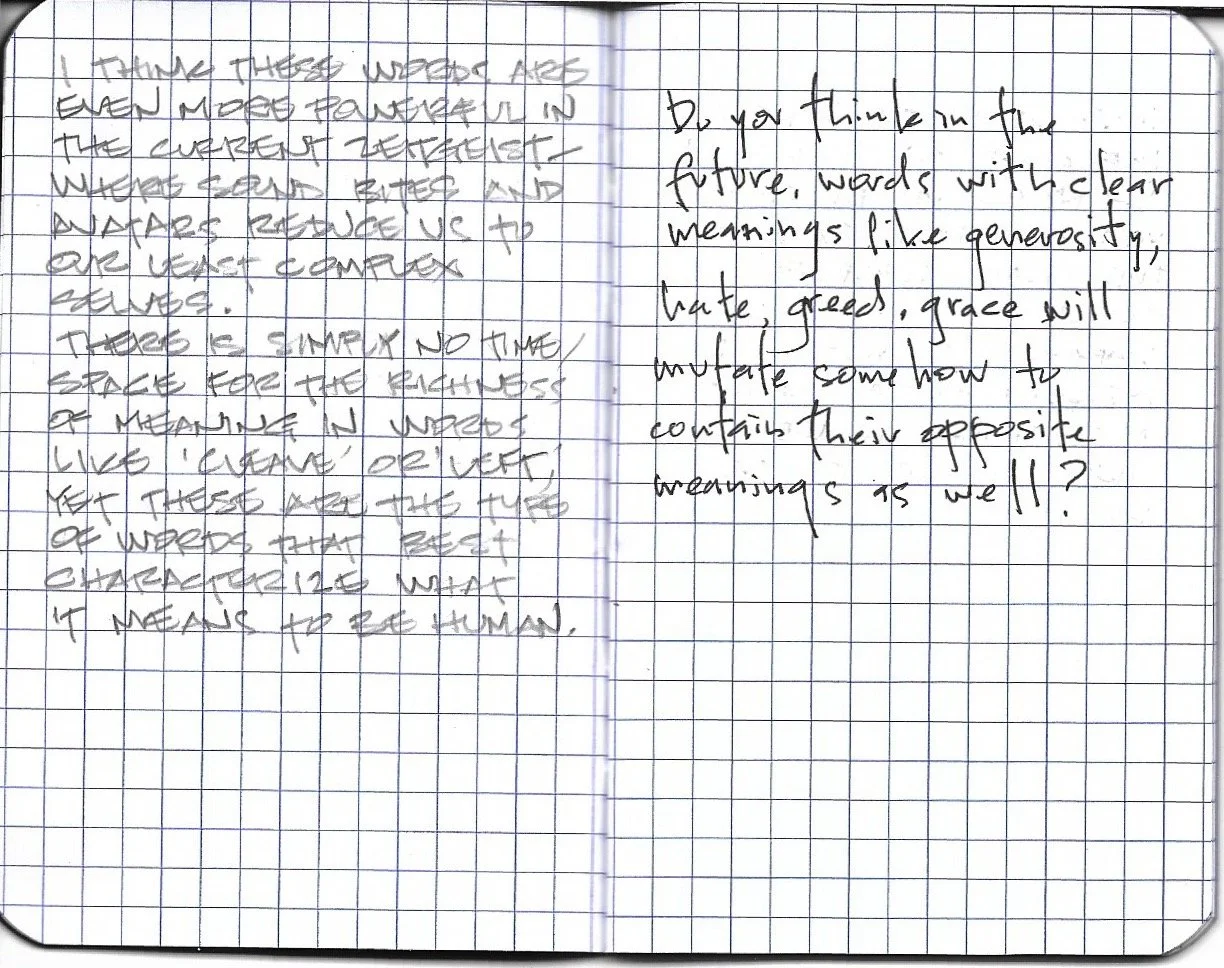 I THINK THESE WORDS ARE
EVEN MORE POWERFUL IN
THE CURRENT ZEITGEIST—
WHERE SOUND BITES AND
AVATARS REDUCE US TO
OUR LEAST COMPLEX
SELVES.
THERE IS SIMPLY NO TIME/
SPACE FOR THE RICHNESS
OF MEANING IN WORDS
LIKE 'CLEAVE' OR 'LEFT,'
YET THESE ARE THE TYPE
OF WORDS THAT BEST
CHARACTERIZE WHAT
IT MEANS TO BE HUMAN.
Do you think in the
future, words with clear
meanings like generosity,
hate, greed, grace will
mutate somehow to
contain their opposite
meanings as well?